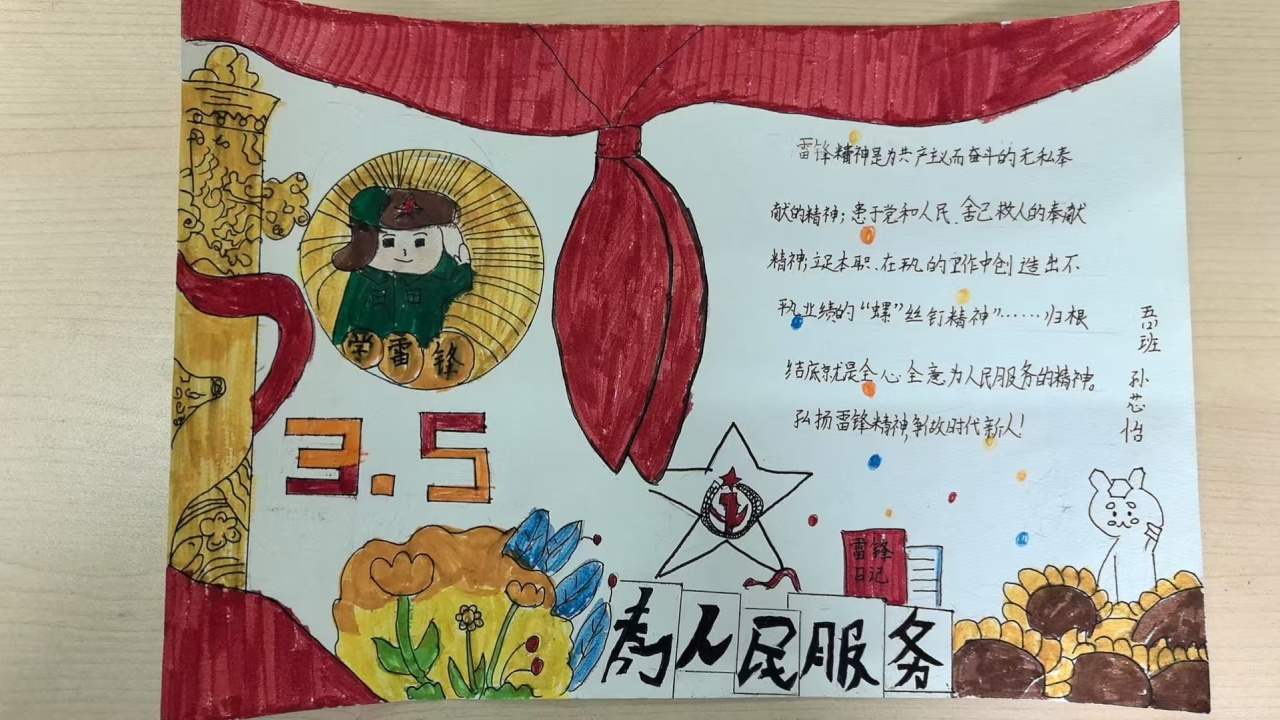 雷锋精神是为共产主义而奋斗的无私奉
献的精神；忠于党和人民、舍己救人的奉献
精神；立足本职、在平凡的工作中创造出不
平凡业绩的“螺”丝钉精神”……归根
结底就是全心全意为人民服务的精神。
弘扬雷锋精神，争做时代新人！
五(2)班
孙芯怡
学雷锋
3.5
雷锋
日记
為人民服务